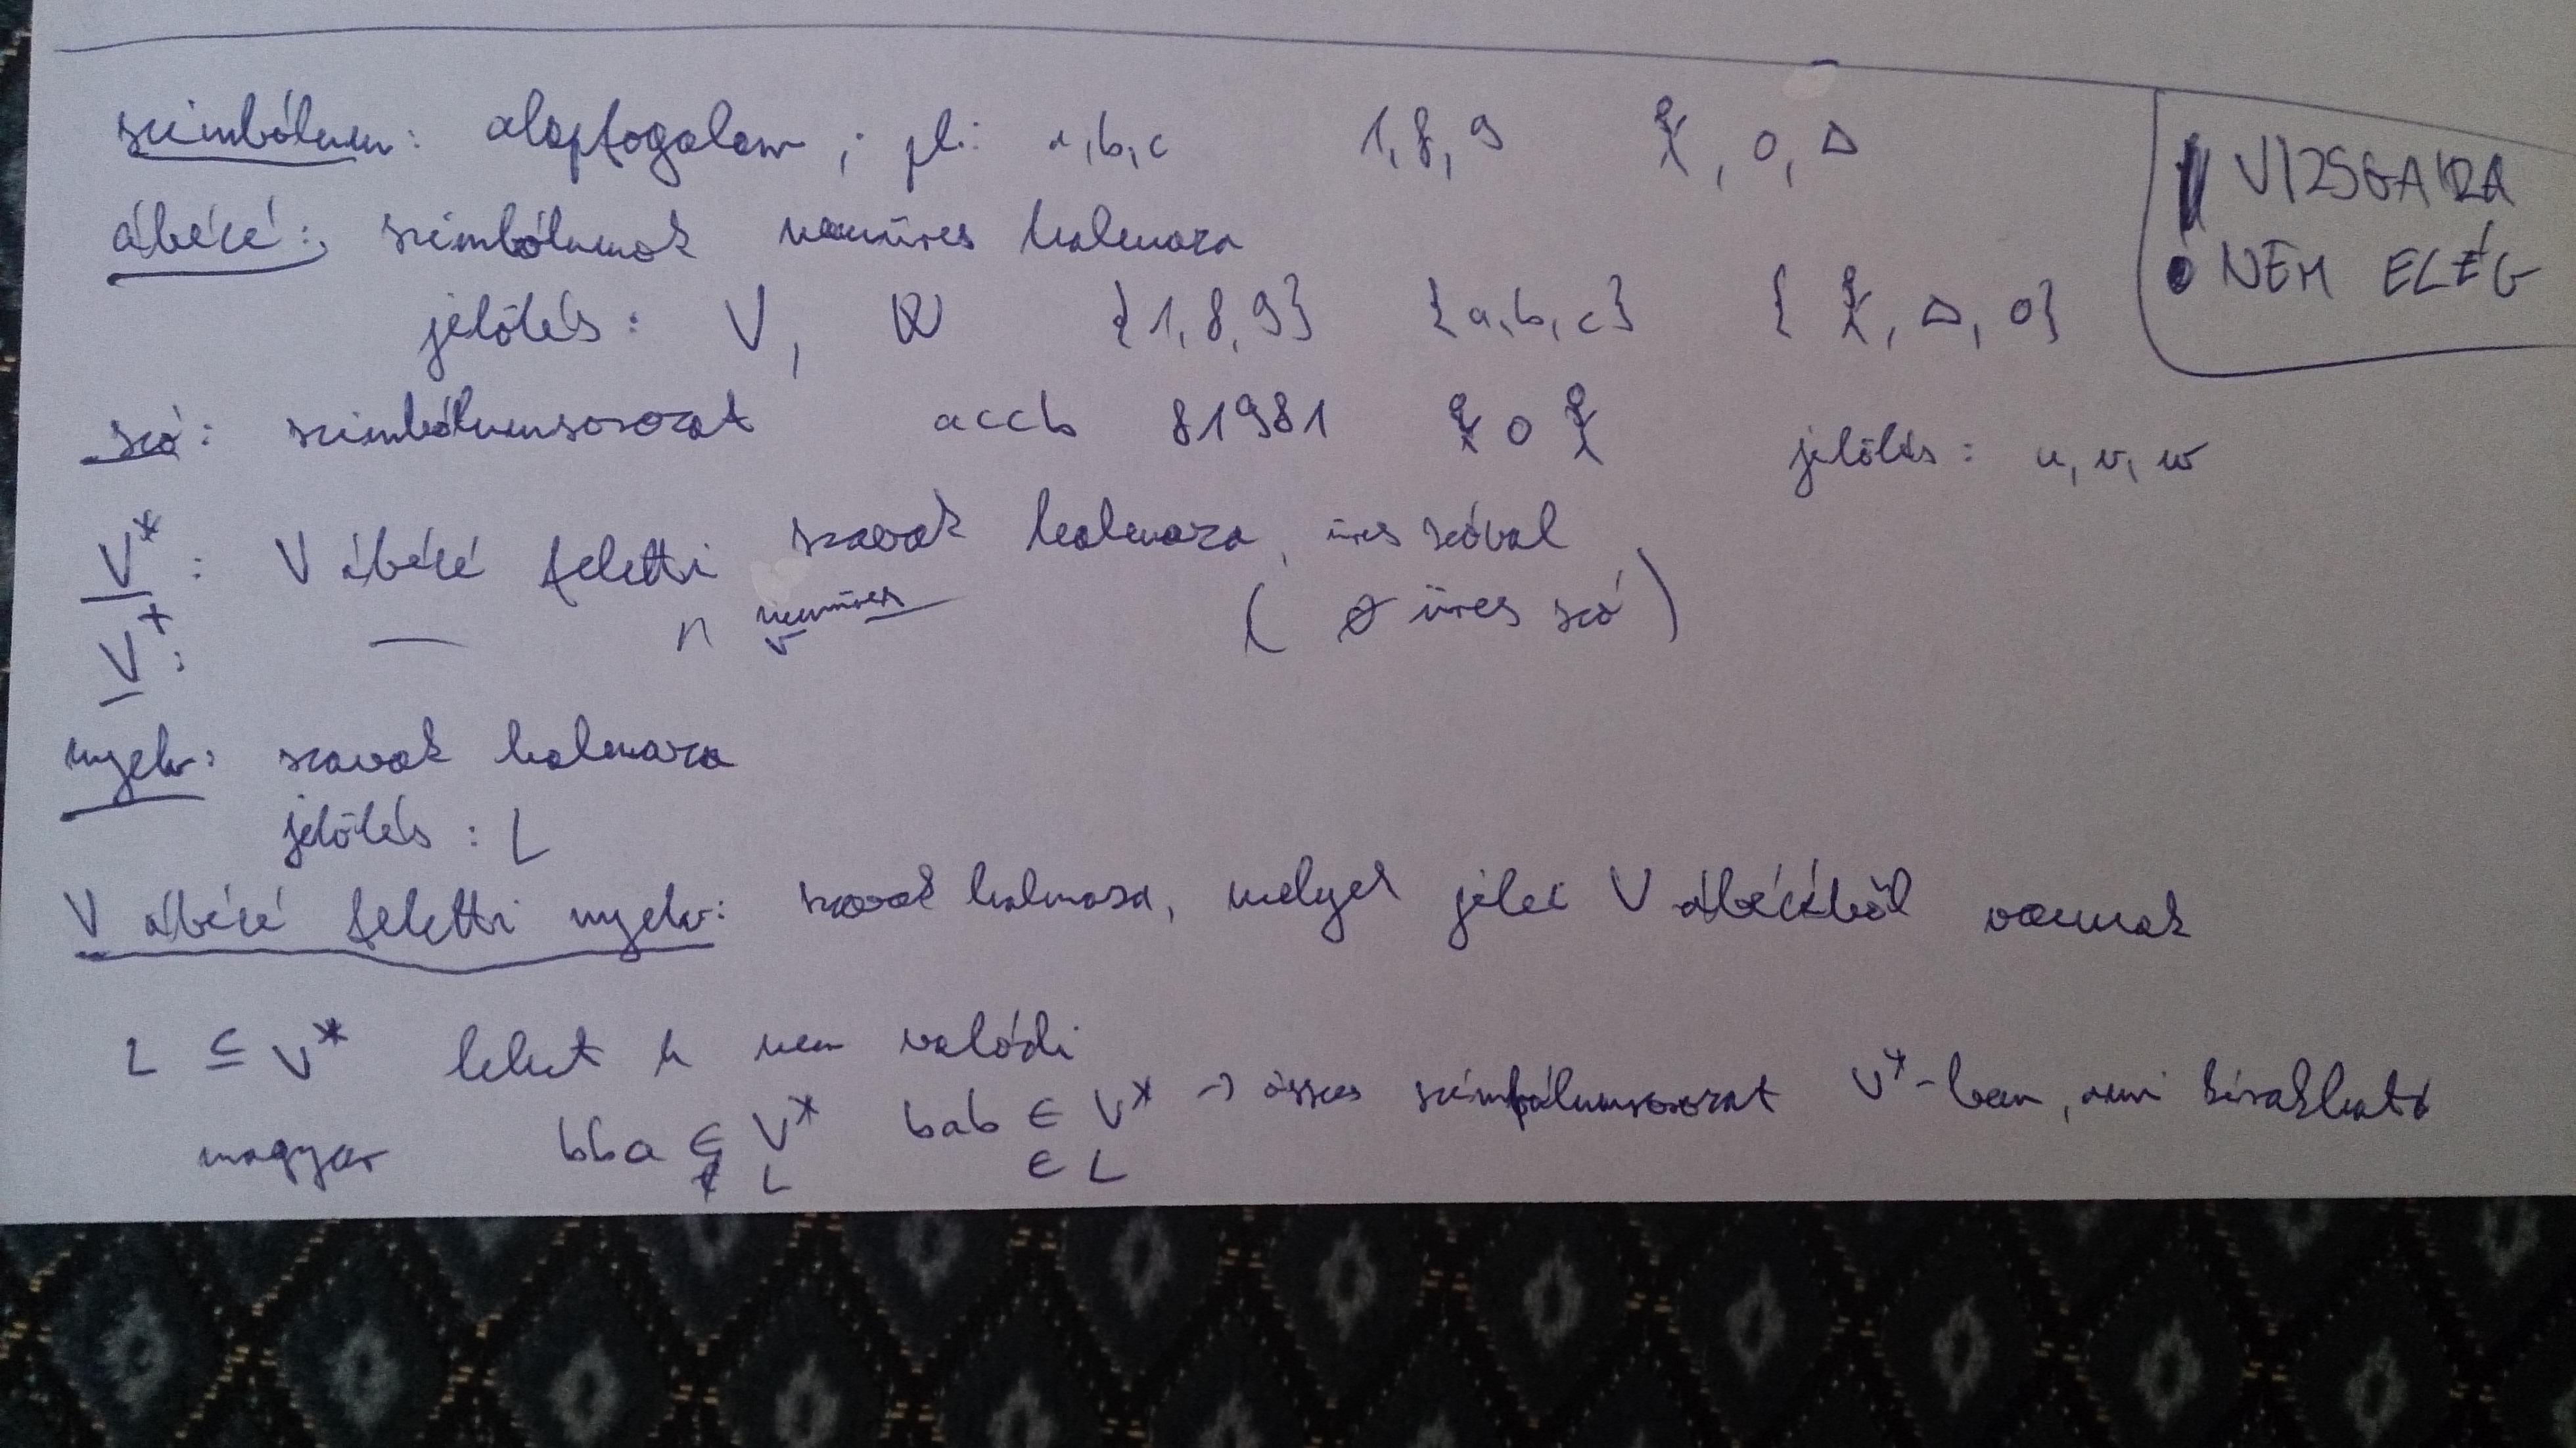 szimbólum: alapfogalom ; pl: a,b,c 1,8,9 , o, Δ
! VIZSGÁRA
NEM ELÉG
ábécé: szimbólumok nemüres halmaza
jelölés: V, W {1,8,9} {a,b,c} { , Δ, o}
szó: szimbólumsorozat accb 81981 o jelölés: u, v, w
V*: V ábécé feletti szavak halmaza, üres szóval
V+: — " — nemüres (ø üres szó)
nyelv: szavak halmaza
jelölés: L
V ábécé feletti nyelv: szavak halmaza, melyek jelei V ábécéből vannak
L ⊆ V* lehet nem valódi
magyar bba ∈ V* bab ∈ V* → összes szimbólumsorozat V*-ban, ami kirakható
∉ L ∈ L